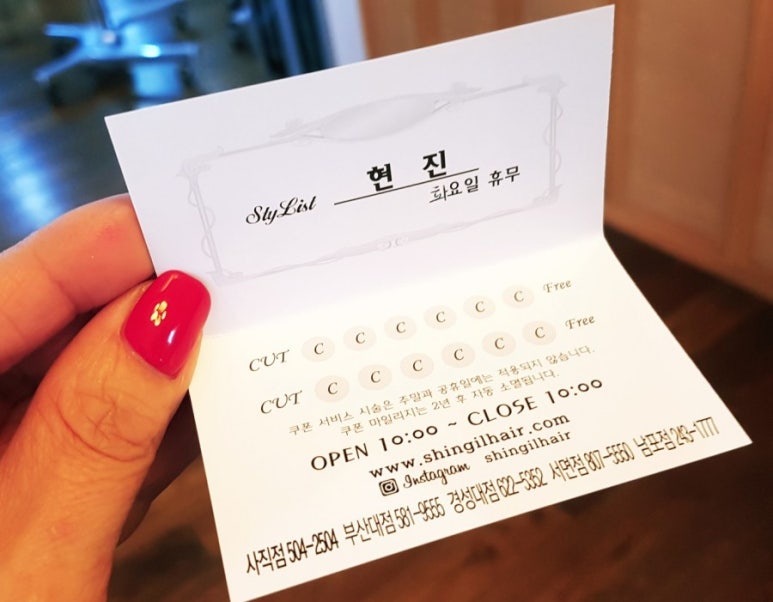 현 진
StyList 화요일 휴무
CUT C C C C C C Free
CUT C C C C C C Free
쿠폰 서비스 시술은 주말과 공휴일에는 적용되지 않습니다.
쿠폰 마일리지는 2년 후 자동 소멸됩니다.
OPEN 10:00 ~ CLOSE 10:00
www.shingilhair.com
Instagram shingilhair
사직점 504-2504 부산대점 581-9555 경성대점 622-5352 서면점 807-5550 남포점 243-1777